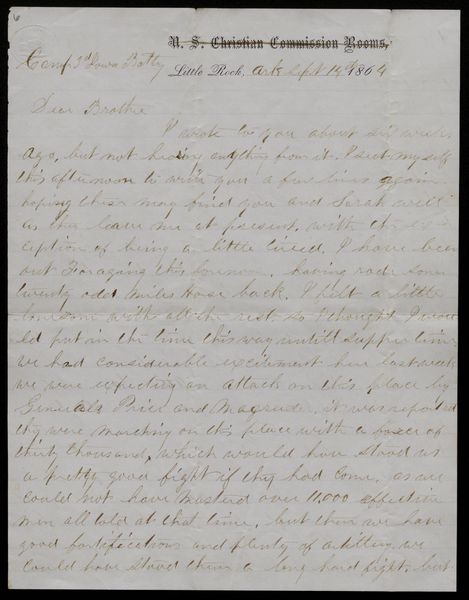 U. S. Christian Commission Rooms,
Camp 3d Iowa Batty Little Rock, Ark Sept 14th 1864
Dear Brother
I wrote to you about six weeks
ago, but not hearing anything from it. I seat myself
this afternoon to write you a few lines again
hoping these may find you and Sarah well
as they leave me at present, with the ex-
ception of being a little tired, I have been
out Foraging this forenoon, having rode some
twenty odd miles Horse back, I felt a little
lonesom with all the rest so I thought I wou
ld put in the time this way untill supper time
we had considerable excitment here last week
we were expecting an attack on this place by
Generals Price and Magruder, it was reported
thy were marching on this place with a force of
thirty thousand, which would have stood us
a pretty good fight if thy had come, as we
could not have musterd over 11,000 effective
men all told at that time, but then we have
good fortifications and plenty of artillery we
could have stood them a long hard fight, but